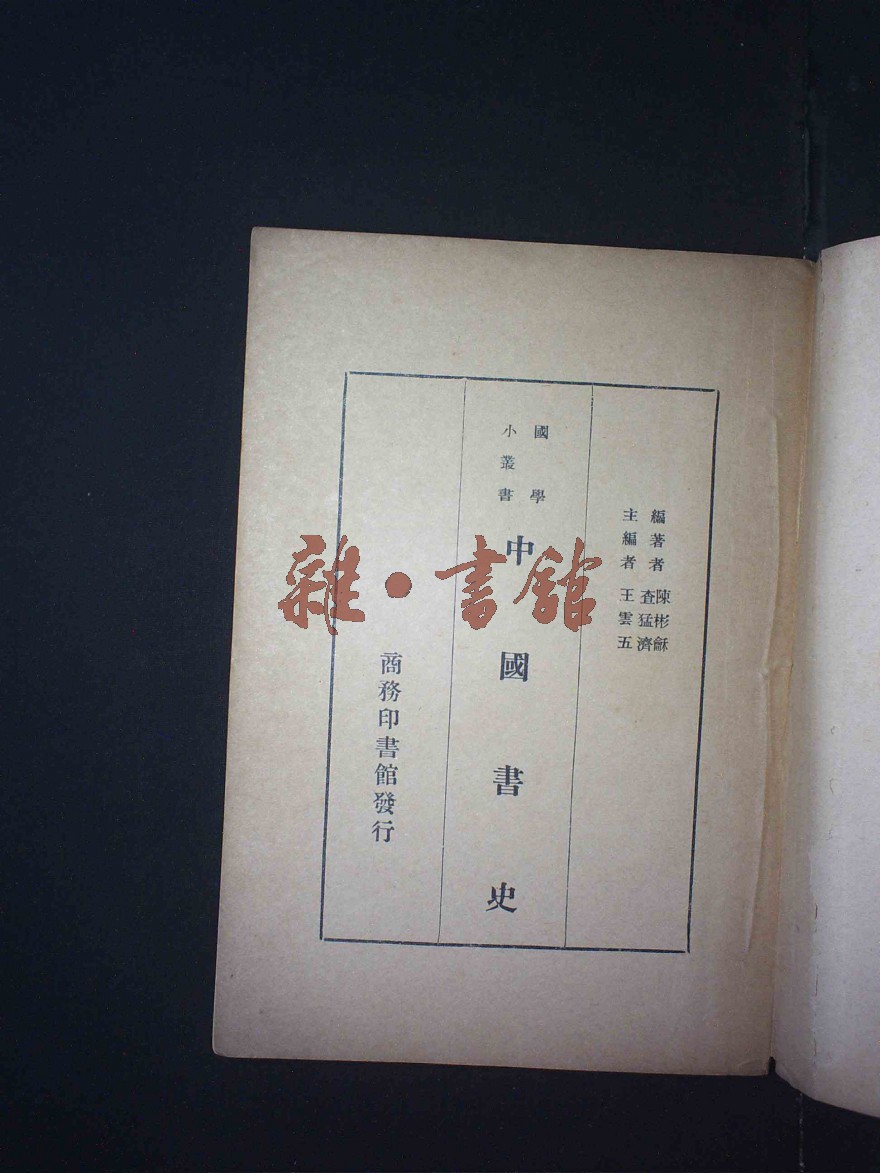 編著者 陳彬龢
查猛濟
主編者 王雲五
國學
小叢書
中國書史
商務印書館發行
雜·書館